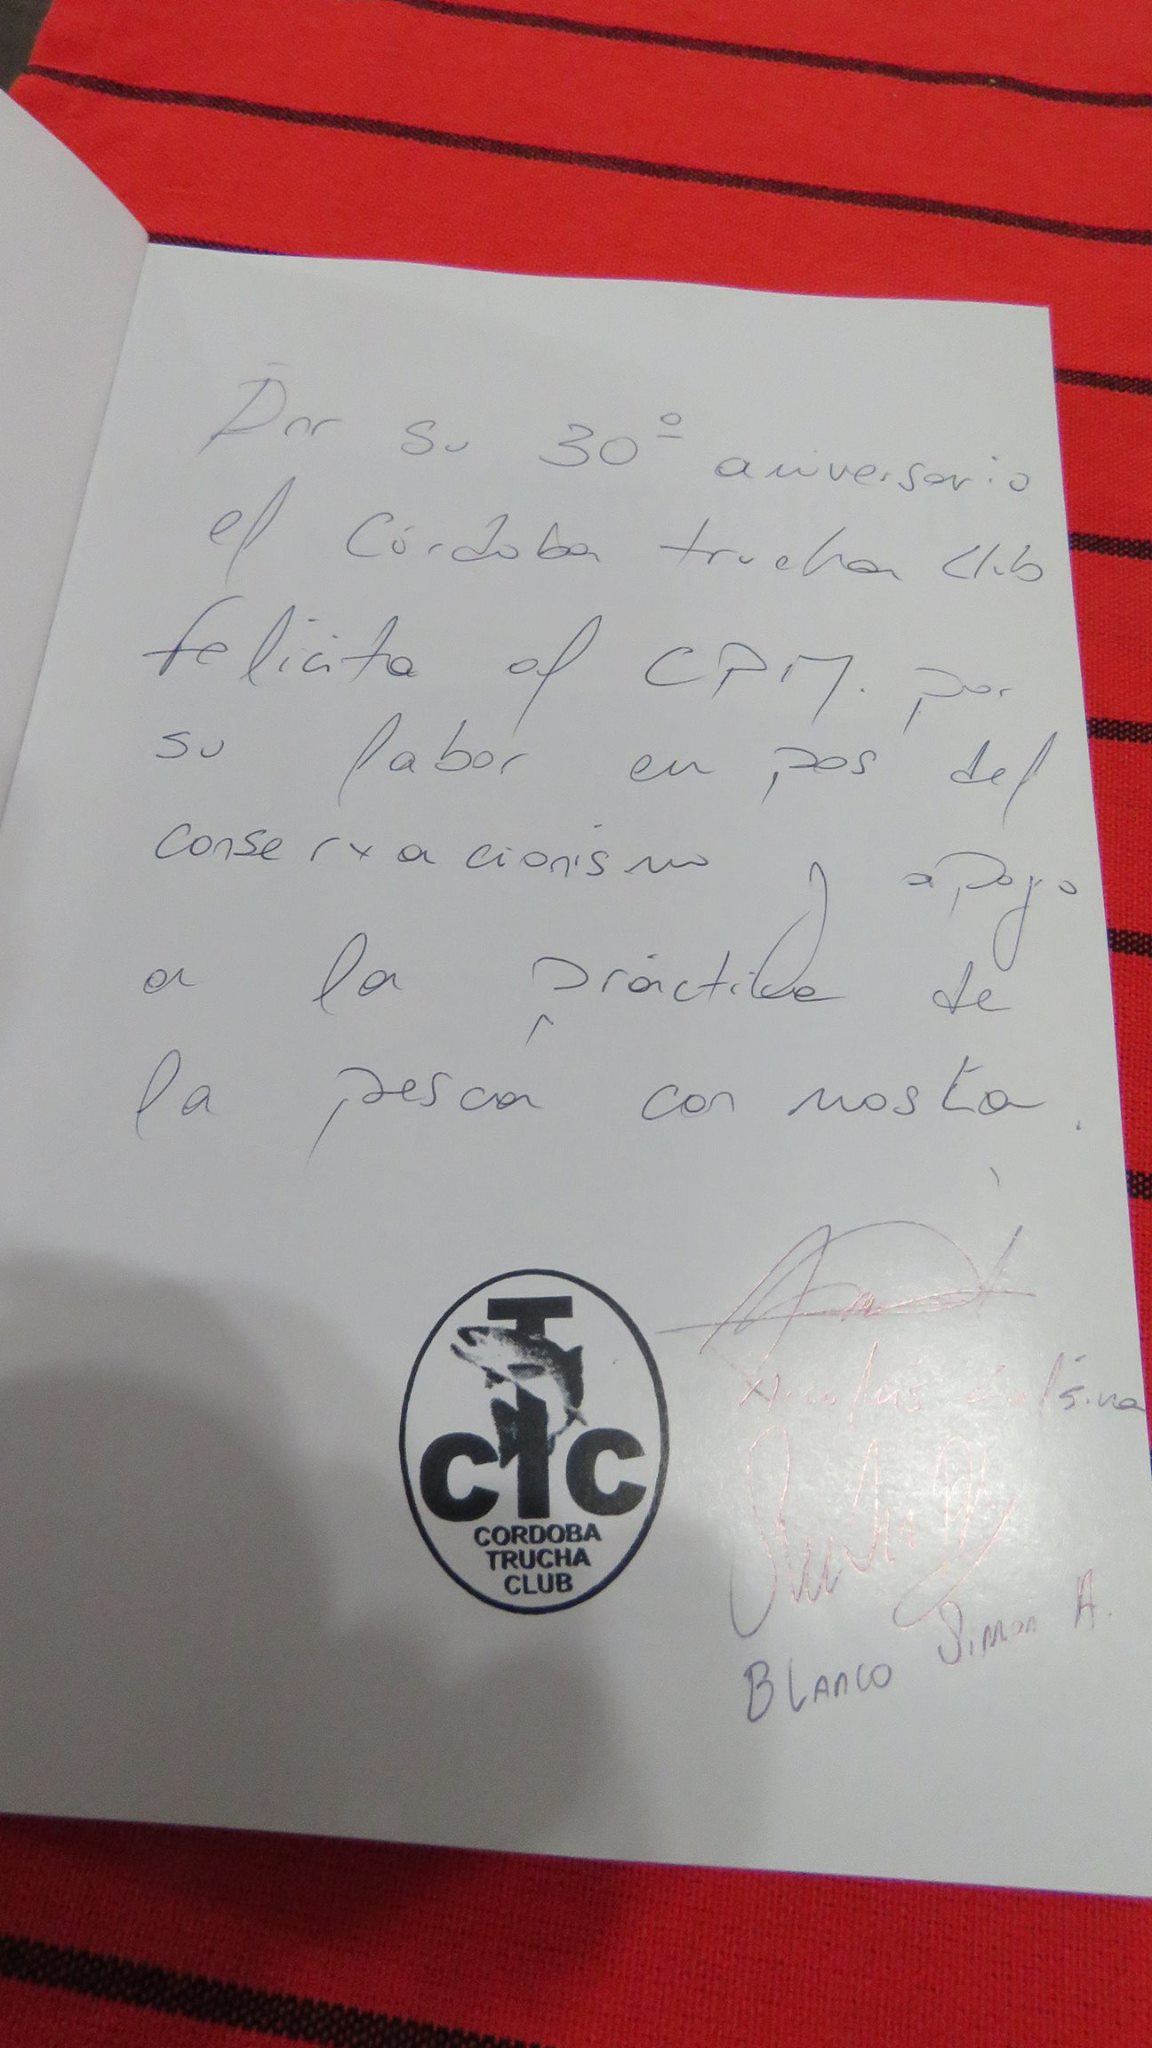 Por su 30º aniversario
el Córdoba trucha club
felicita al CPM. por
su labor en pos del
conservacionismo y apoyo
a la práctica de
la pesca con mosca.
CTC
CORDOBA
TRUCHA
CLUB
BLANCO Simon A.